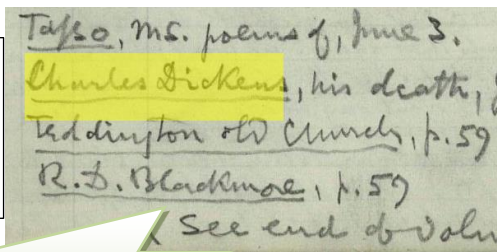 Tasso, MS. poems of, June 3.
Charles Dickens, his death,
Teddington old Church, p.59
R.D. Blackmore, p.59
(See end of volu